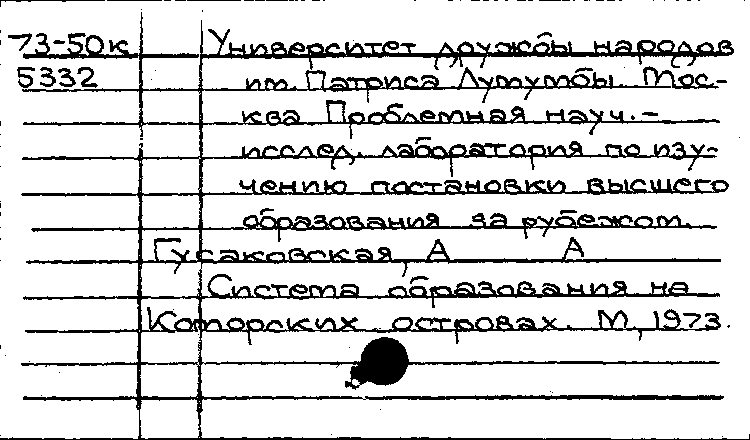 73-50к Университет дружбы народов
5332 им. Патриса Лумумбы. Мос-
ква Проблемная науч.-
исслед. лаборатория по изу-
чению постановки высшего
образования за рубежом.
Гусаковская, А А
Система образования на
Коморских островах. М, 1973.